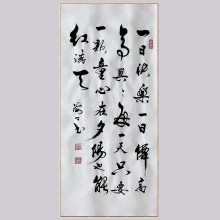 一日快樂一日僊高
高興々每一天只要
一顆童心在夕陽也能
紅滿天